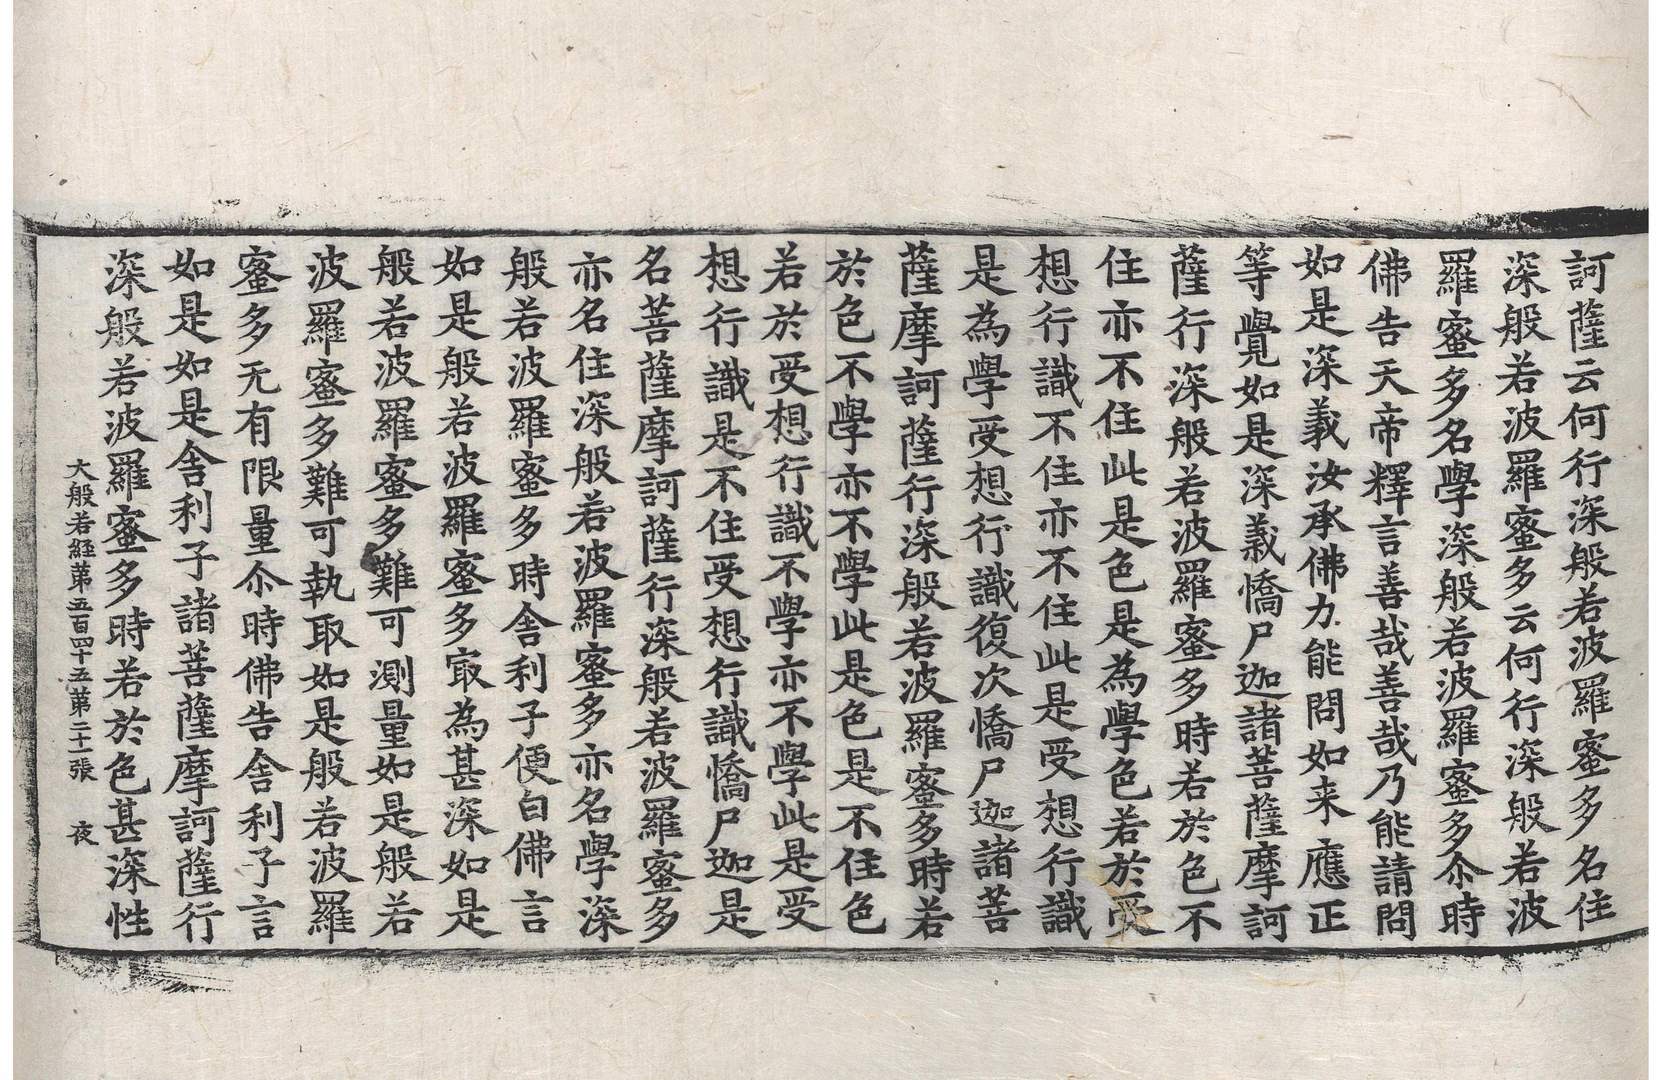 訶薩云何行深般若波羅蜜多名住
深般若波羅蜜多云何行深般若波
羅蜜多名學深般若波羅蜜多尒時
佛告天帝釋言善哉善哉乃能請問
如是深義汝承佛力能問如来應正
等覺如是深義憍尸迦諸菩薩摩訶
薩行深般若波羅蜜多時若於色不
住亦不住此是色是為學色若於受
想行識不住亦不住此是受想行識
是為學受想行識復次憍尸迦諸菩
薩摩訶薩行深般若波羅蜜多時若
於色不學亦不學此是色是不住色
若於受想行識不學亦不學此是受
想行識是不住受想行識憍尸迦是
名菩薩摩訶薩行深般若波羅蜜多
亦名住深般若波羅蜜多亦名學深
般若波羅蜜多時舍利子便白佛言
如是般若波羅蜜多冣為甚深如是
般若波羅蜜多難可測量如是般若
波羅蜜多難可執取如是般若波羅
蜜多无有限量尒時佛告舍利子言
如是如是舍利子諸菩薩摩訶薩行
深般若波羅蜜多時若於色甚深性
大般若経苐五百四十五苐二十一張 夜